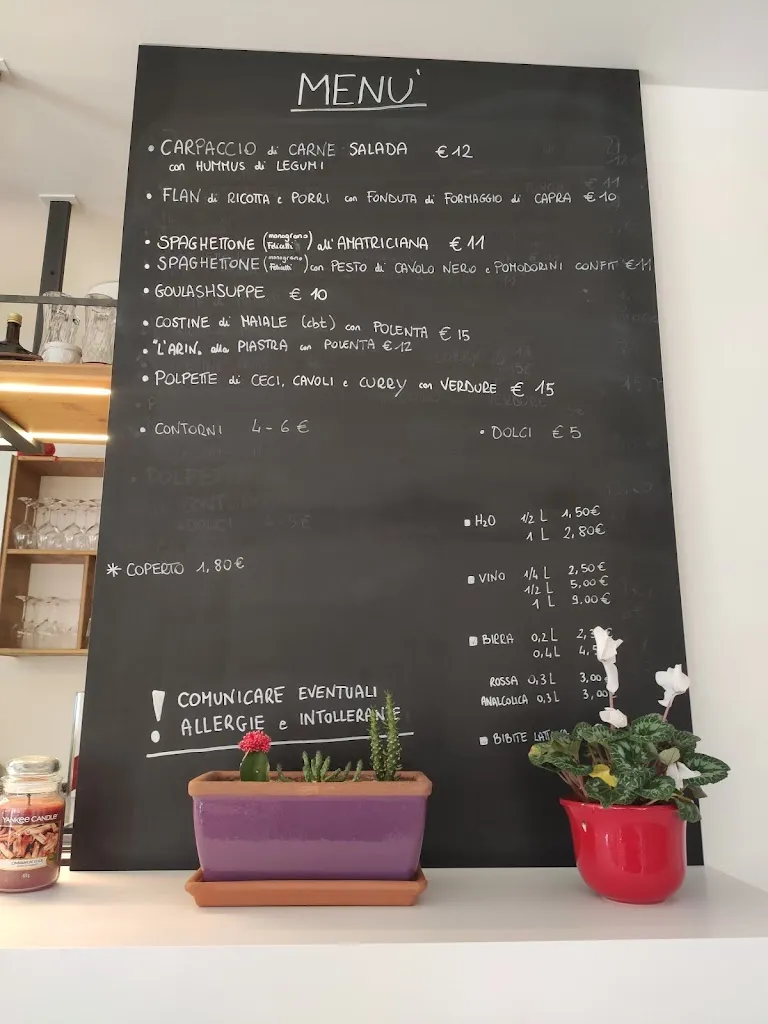 MENU'
• CARPACCIO di CARNE SALADA €12
con HUMMUS di LEGUMI
• FLAN di RICOTTA e PORRI con FONDUTA di FORMAGGIO di CAPRA €10
• SPAGHETTONE (monograno Felicetti) all'AMATRICIANA €11
• SPAGHETTONE (monograno Felicetti) con PESTO di CAVOLO NERO e POMODORINI CONFIT €11
• GOULASHSUPPE €10
• COSTINE di MAIALE (cbt) con POLENTA €15
• "L'ARIN" alla PIASTRA con POLENTA €12
• POLPETTE di CECI, CAVOLI e CURRY con VERDURE €15
• CONTORNI 4-6€
• DOLCI €5
* COPERTO 1,80€
H2O 1/2 L 1,50€
1 L 2,80€
VINO 1/4 L 2,50€
1/2 L 5,00€
1 L 9.00€
BIRRA 0,2L
0,4L
ROSSA 0,3L 3,00
ANALCOLICA 0,3L 3,00
BIBITE
! COMUNICARE EVENTUALI
ALLERGIE e INTOLLERANZE
YANKEE CANDLE